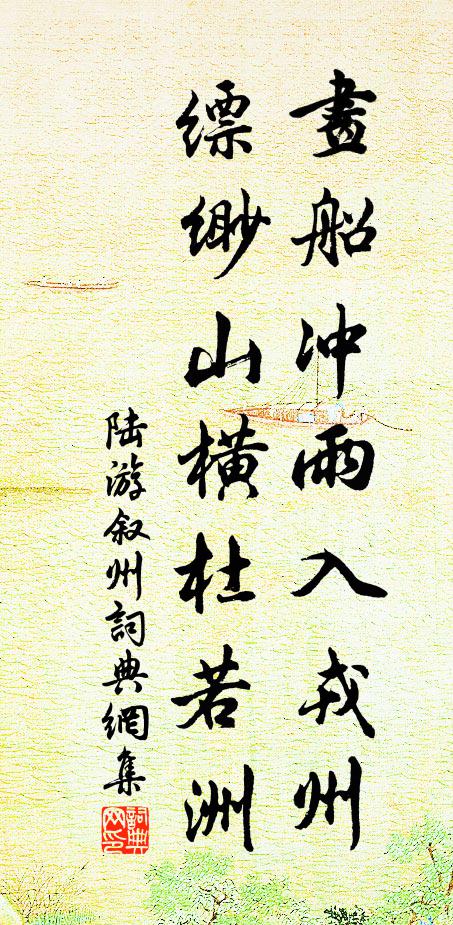 畫船冲雨入戎州
缥缈山橫杜若洲
陆游叙州詞典網集
詞典网印